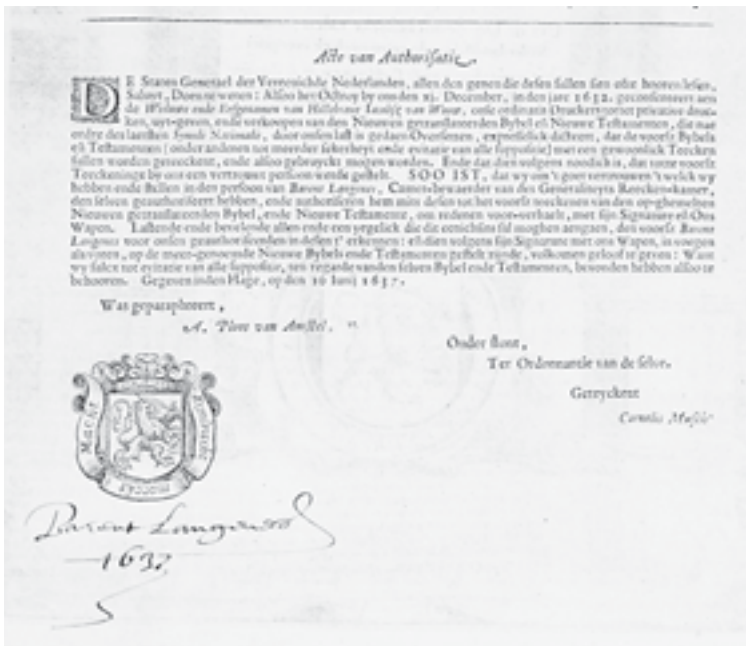 Acte van Authorisatie
DE Staten Generael der Vereenichde Nederlanden, allen den genen die desen sullen sien ofte hooren lesen,
Saluyt, Doen te weten: Alsoo het Octroy by ons den xi. December, in den jare 1632. geconsenteert aen
de Weduwe ende Erfgenamen van Hillebrant Jacobsz van Wouw, onse ordinaris Druckers tot het privative druc-
ken, uyt-geven, ende verkoopen van den Nieuwen getranslateerden Bybel eñ Nieuwe Testamenten, die nae
ordre des laetsten Synode Nationale, door onsen last is gedaen Oversetten, expresselick dicteert, dat de voorsz Bybels
eñ Testamenten (onder anderen tot meerder sekerheyt ende evitatie van alle suppositie) met een gewoonlick Teecken
sullen worden geteeckent, ende alsoo gebruyckt mogen worden. Ende dat dien volgens noodich is, dat totte voorsz
Teeckeninge by ons een vertrouwt persoon werde gestelt. SOO IST, dat wy om 't goet vertrouwen 't welck wy
hebben ende stellen in den persoon van Barent Langenes, Camer-bewaerder van der Generaliteyts Reecken-kamer,
den selven geauthoriseert hebben, ende authoriseren hem mits desen tot het voorsz teeckenen van den op-ghemelten
Nieuwen getranslateerden Bybel, ende Nieuwe Testamente, om redenen voor-verhaelt, met sijn Signature eñ Ons
Wapen. Lastende ende bevelende allen ende een yegelick die dit eenichsins sal moghen aengaen, den voorsz Barent
Langenes voor onsen geauthoriseerden in desen t' erkennen: eñ dien volgens sijn Signature met ons Wapen, in voegen
als vooren, op de meer-genoemde Nieuwe Bybels ende Testamenten gestelt zijnde, volkomen geloof te geven: Want
wy sulcx tot evitatie van alle suppositie, ten regarde vanden selven Bybel ende Testamenten, bevonden hebben alsoo te
behooren. Gegeven inden Hage, op den 16 Junij 1637.
Was geparapheert,
A. Ploos van Amstel.
Onder stont,
Ter Ordonnantie van de selve.
Geteyckent
Cornelis Musch
Macht Eendracht
Barent Langenes
1637